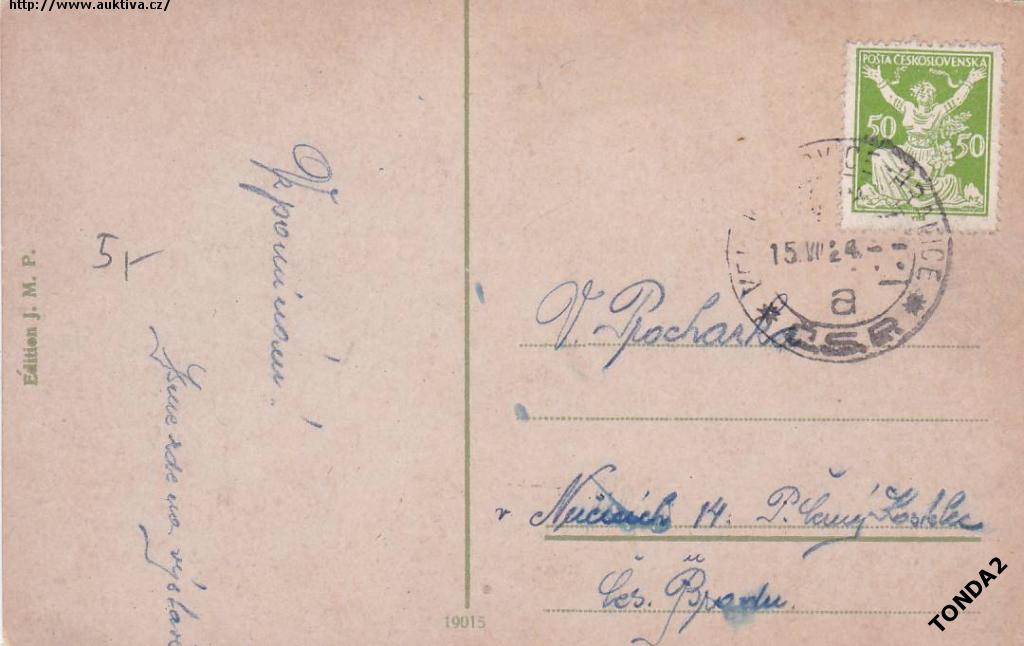 http://www.auktiva.cz/
POŠTA ČESKOSLOVENSKÁ
50
50
15.VII.24.
a
Č.S.R
Vzpomínám!
Jsme zde na výstavě
5
Edition J. M. P.
V. Procházka
v Nučicích 14. P. Černý Kostelec
Čes. Brodu.
19015
TONDA2